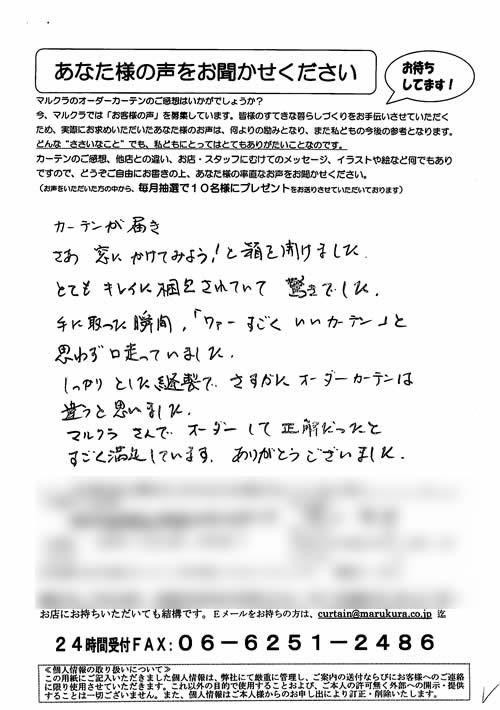 あなた様の声をお聞かせください
お待ち
してます！
マルクラのオーダーカーテンのご感想はいかがでしょうか？
今、マルクラでは「お客様の声」を募集しています。皆様のすてきな暮らしづくりをお手伝いさせていただく
ため、実際にお求めいただいたあなた様のお声は、何よりの励みとなり、また私どもの今後の参考となります。
どんな“ささいなこと”でも、私どもにとってはとてもありがたいことなのです。
カーテンのご感想、他店との違い、お店・スタッフにむけてのメッセージ、イラストや絵など何でもあり
ですので、どうぞご自由にお書きの上、あなた様の率直なお声をお聞かせください。
（お声をいただいた方の中から、毎月抽選で１０名様にプレゼントをお送りさせていただいております）
カーテンが届き
さあ 窓にかけてみよう！と箱を開けました。
とても キレイに梱包されていて 驚きでした。
手に取った瞬間、「ワァーすごく いいカーテン」と
思わず口走っていました。
しっかり とした縫製で さすがに オーダーカーテンは
違うと思いました。
マルクラ さんで オーダー して 正解だったと
すごく満足しています。 ありがとうございました。
お店にお持ちいただいても結構です。Ｅメールをお持ちの方は、curtain@marukura.co.jp 迄
２４時間受付ＦＡＸ：０６－６２５１－２４８６
≪個人情報の取り扱いについて≫
この用紙にご記入いただきました個人情報は、弊社にて厳重に管理し、ご案内の送付ならびにお客様へのご連絡
に限り使用させていただきます。これ以外の目的で使用することおよび、ご本人の許可無く外部への開示・提供
することは一切ございません。また、個人情報はご本人様からのお申し出により訂正・削除いたします。